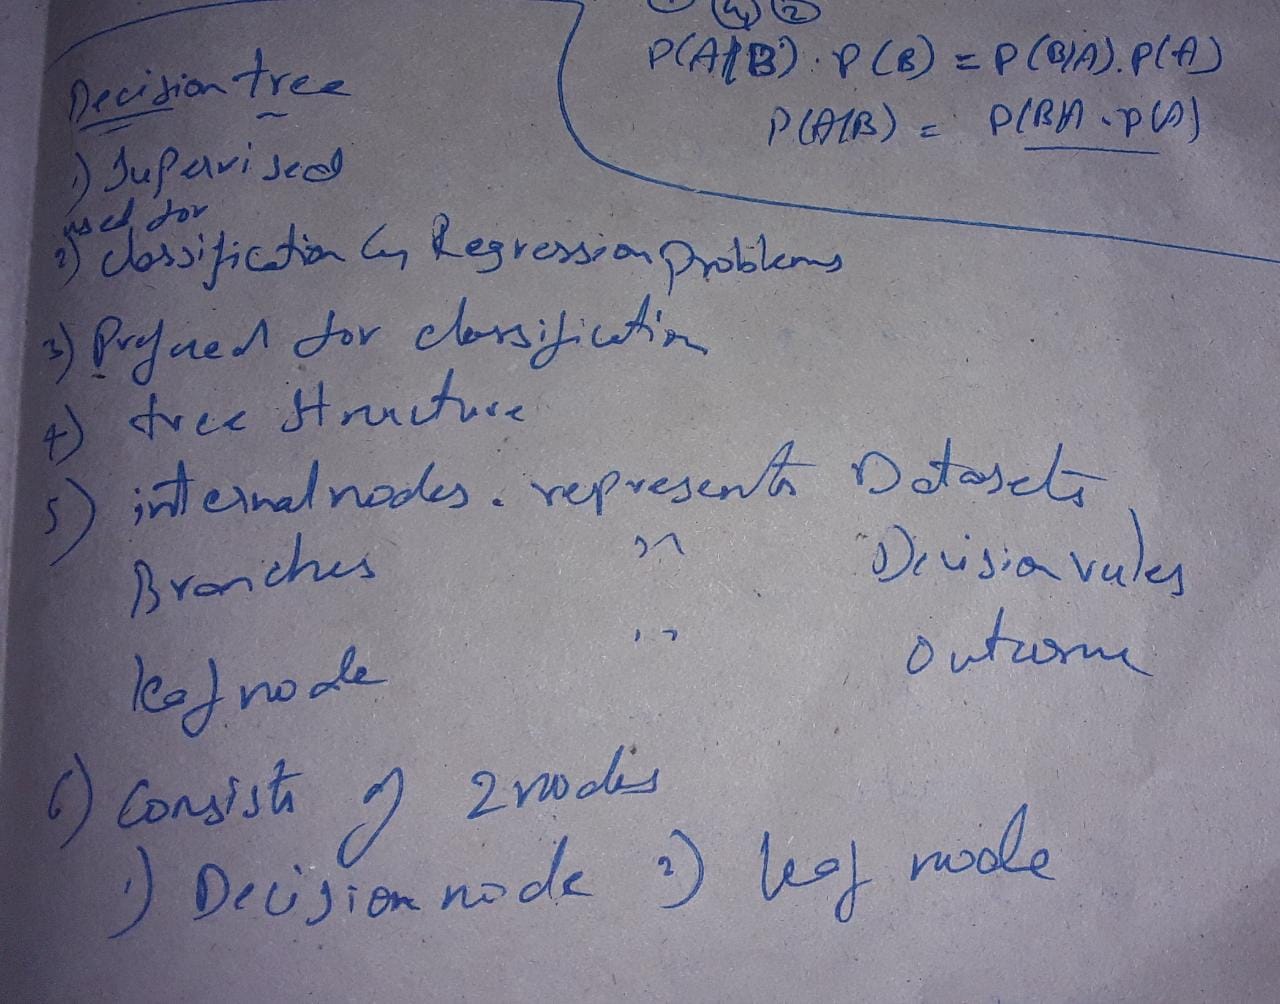 ① ④ ②
P(A|B) . P(B) = P(B|A). P(A)
P(A|B) = P(B|A . P(A)
Decision tree
1) Supervised
used for
2) classification & Regression problems
3) Prefered for classification
4) tree structure
5) internal nodes . represents Datasets
Branches " Decision rules
leaf node " outcome
6) Consists of 2 nodes
1) Decision node 2) leaf node